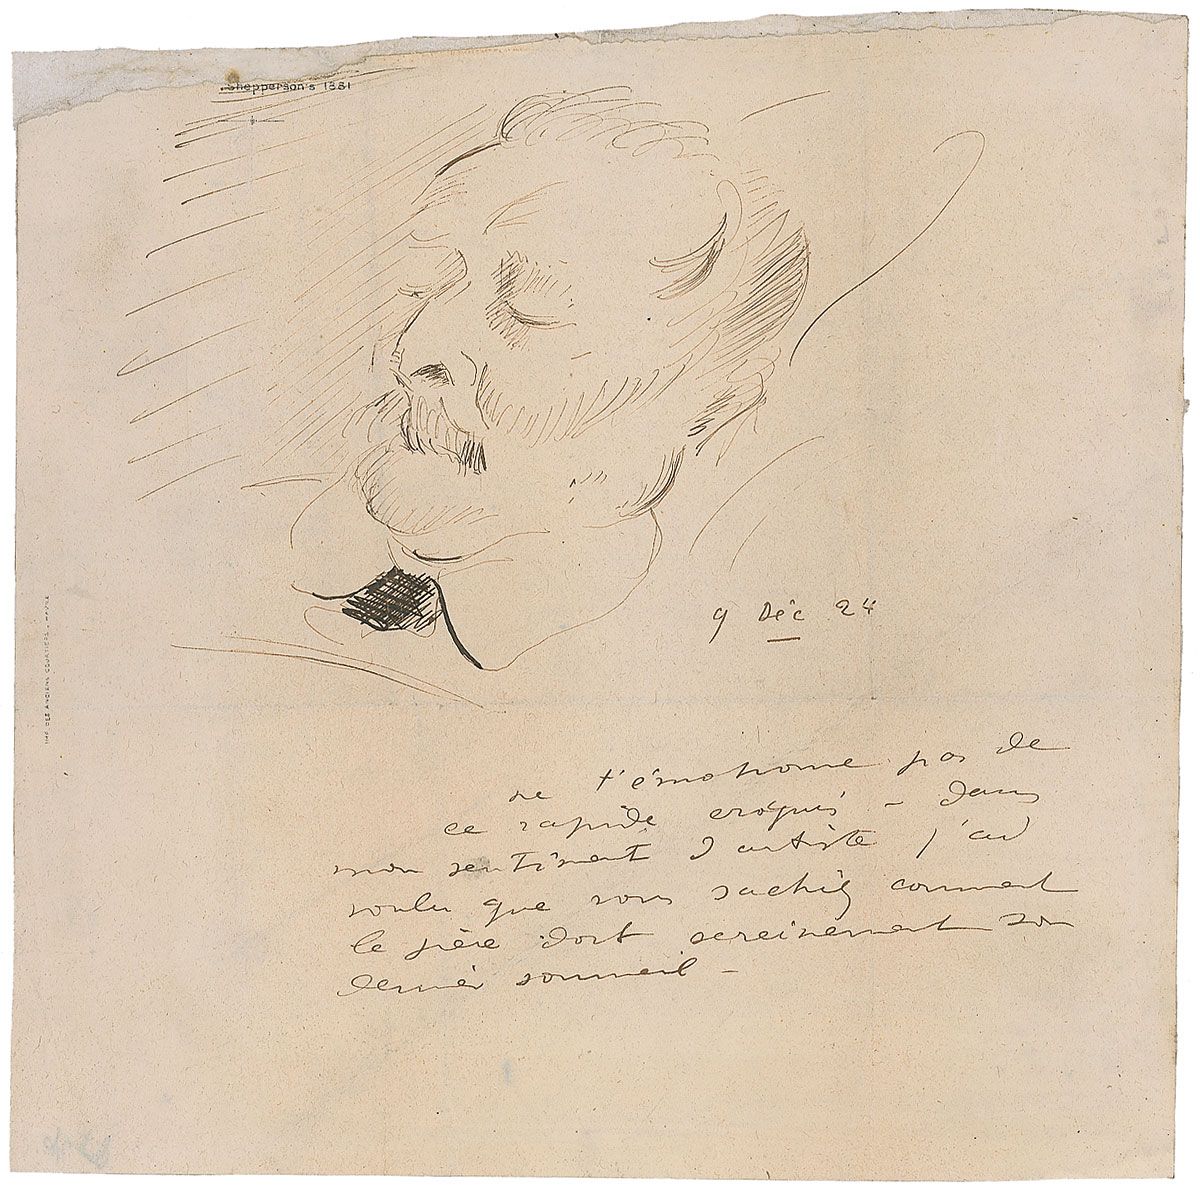 Shepperson's 1881
IMP. DES ANCIENS COURTIERS - HAVRE
9 Déc 24
ne t'émotionne pas de
ce rapide croquis - dans
mon sentiment d'artiste j'ai
voulu que vous sachiez comment
le père dort sereinement son
dernier sommeil -